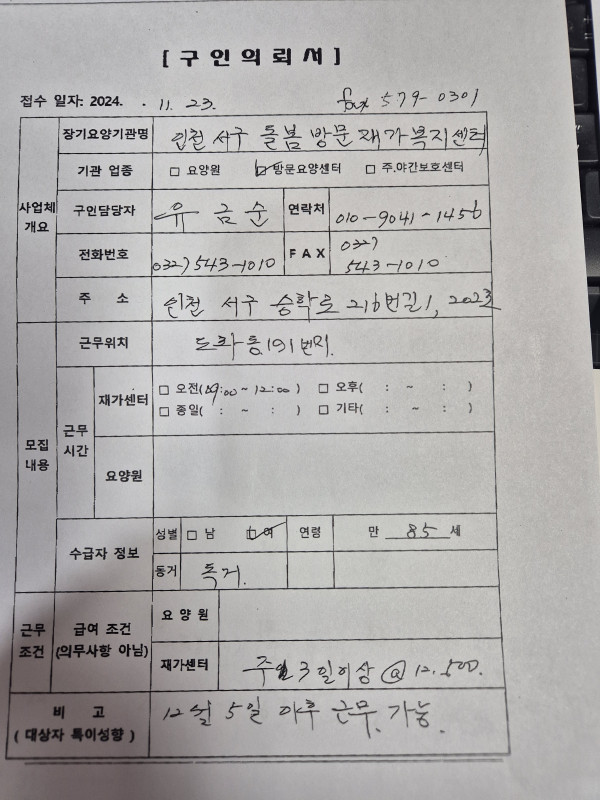 [ 구 인 의 뢰 서 ]
접수 일자: 2024. . 11. 23. fax 579-0301
사업체 개요
장기요양기관명 인천 서구 돌봄 방문 재가복지센터
기관 업종 □ 요양원 ☑ 방문요양센터 □ 주.야간보호센터
구인담당자 유 금 순 연락처 010-9041-1456
전화번호 032) 543-1010 F A X 032) 543-1010
주 소 인천 서구 승학로 216번길 1, 202호
모집 내용
근무위치 도화동 191번지.
근무 시간
재가센터 □ 오전( 09:00 ~ 12:00 ) □ 오후( : ~ : )
□ 종일( : ~ : ) □ 기타( : ~ : )
요양원
수급자 정보 성별 □ 남 ☑ 여 연령 만 85 세
동거 독거.
근무 조건
급여 조건 (의무사항 아님)
요 양 원
재가센터 주 3일이상 @ 12.500.
비 고 ( 대상자 특이성향 ) 12월 5일 이후 근무. 가능.